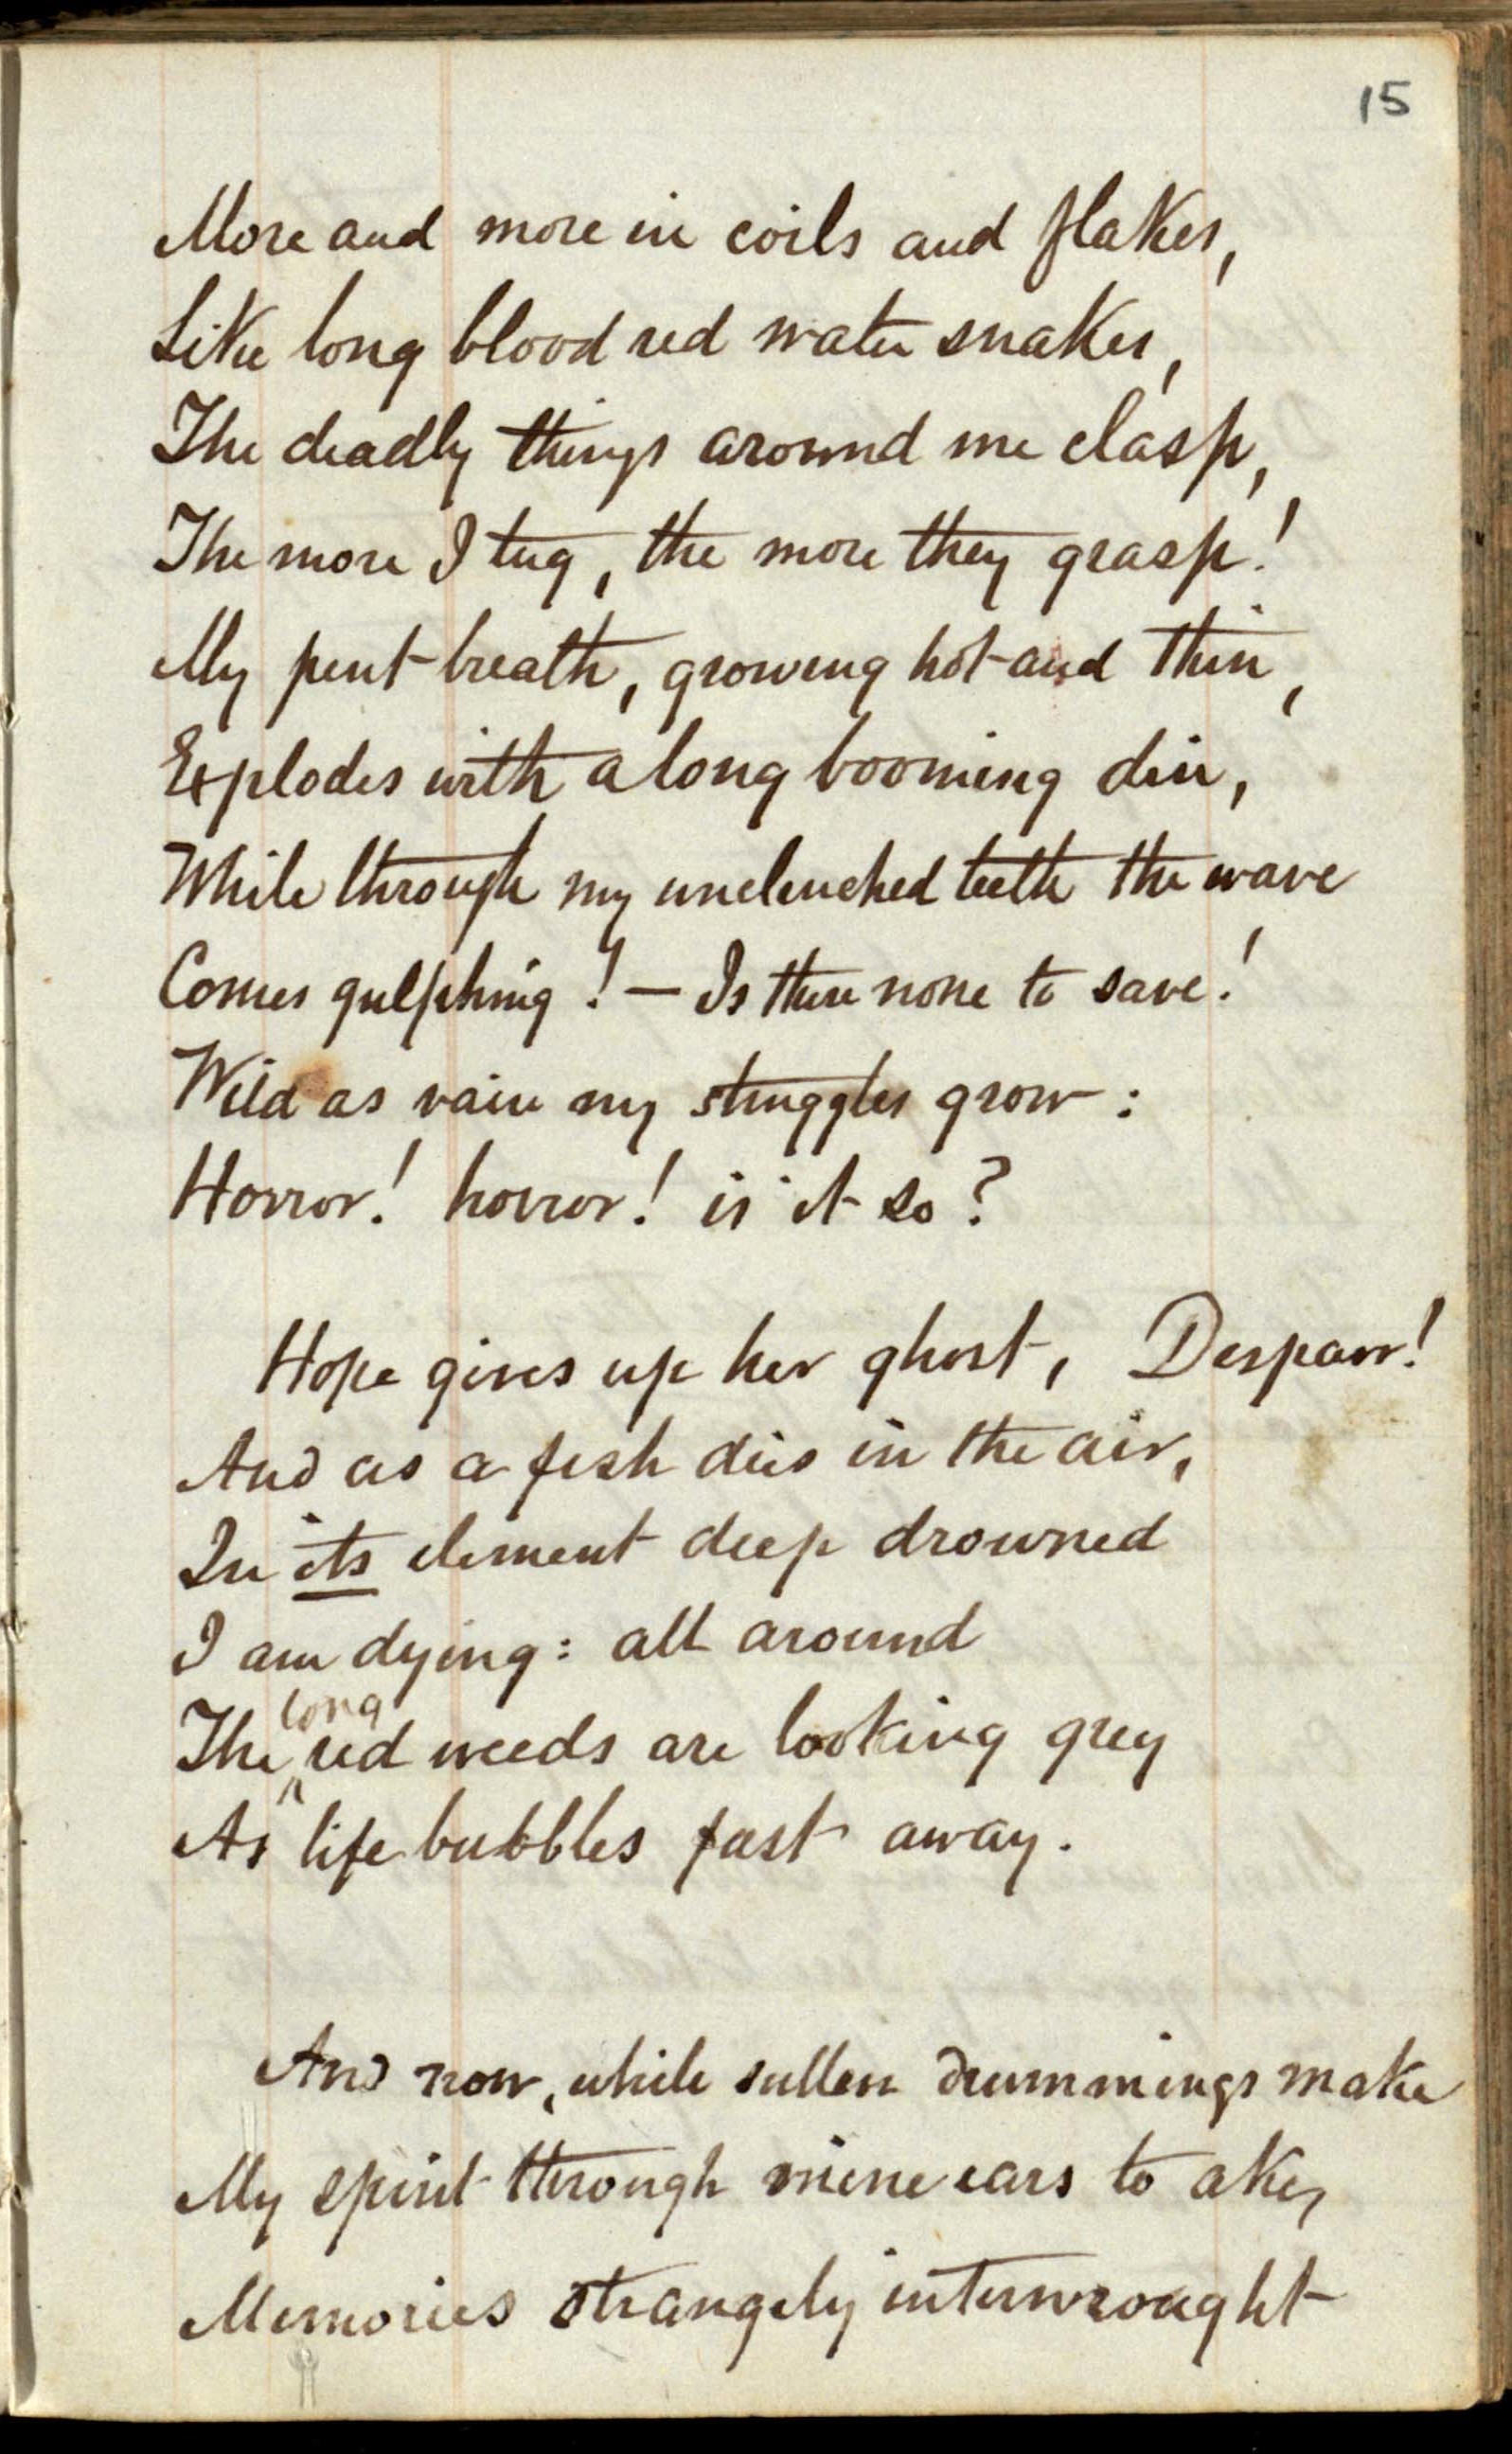 15
More and more in coils and flakes,
Like long blood red water snakes,
The deadly things around me clasp,
The more I tug, the more they grasp!
My pent breath, growing hot and thin,
Explodes with a long booming din,
While through my unclenched teeth the wave
Comes gulphing! — Is there none to save!
Wild as vain my struggles grow:
Horror! horror! is it so?
Hope gives up her ghost, Despair!
And as a fish dies in the air,
In its element deep drowned
I am dying: all around
The long red weeds are looking grey
As life bubbles fast away.
And now, while sullen drummings make
My spirit through mine ears to ake,
Memories strangely interwrought